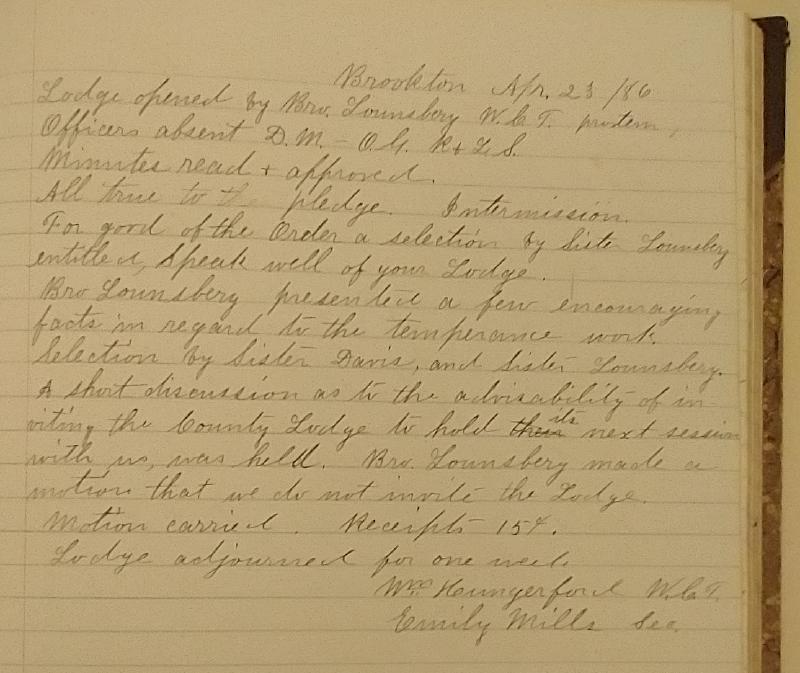 Brookton Apr. 23 /86
Lodge opened by Bro. Lounsbery W.C.T. protem,
Officers absent D.M. - O.G. R & L.S.
Minutes read + approved.
All true to the pledge. Intermission.
For good of the Order a selection by Sister Lounsbery
entitled, Speak well of your Lodge.
Bro Lounsbery presented a few encouraging
facts in regard to the temperance work.
Selection by Sister Davis, and Sister Lounsbery.
A short discussion as to the advisability of in-
viting the County Lodge to hold their its next session
with us, was held. Bro. Lounsbery made a
motion that we do not invite the Lodge.
Motion carried. Receipts 15¢.
Lodge adjourned for one week
Wm Hungerford W.C.T.
Emily Mills Sec.